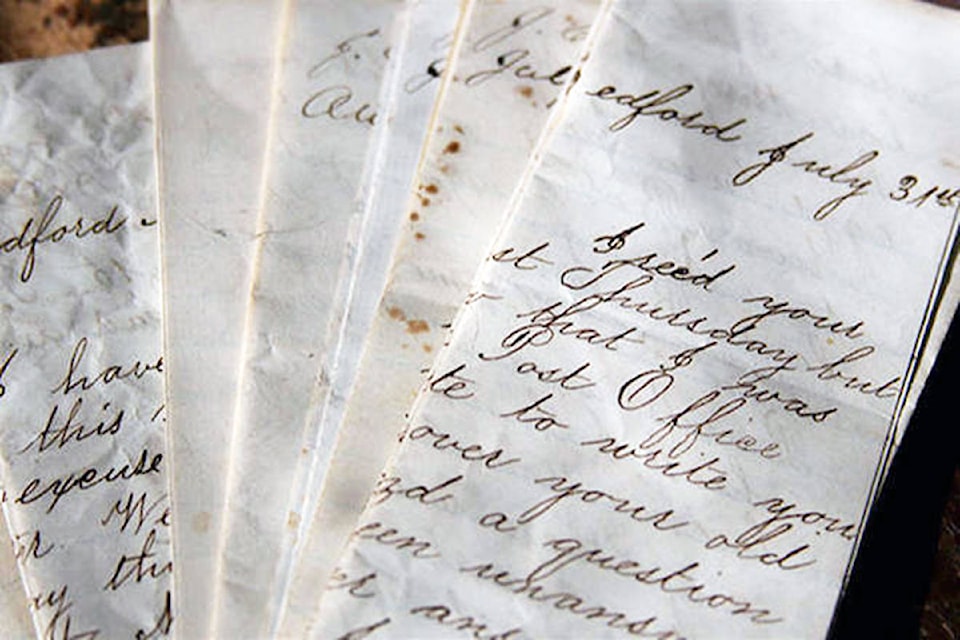 dford
I have
this
excuse
We
ay thi
Au
J.
Jul
edford July 31st
I rec'd your
st Thursday but
that I was
Post Office
te to write you
over your old
nd a question
een unans
er and